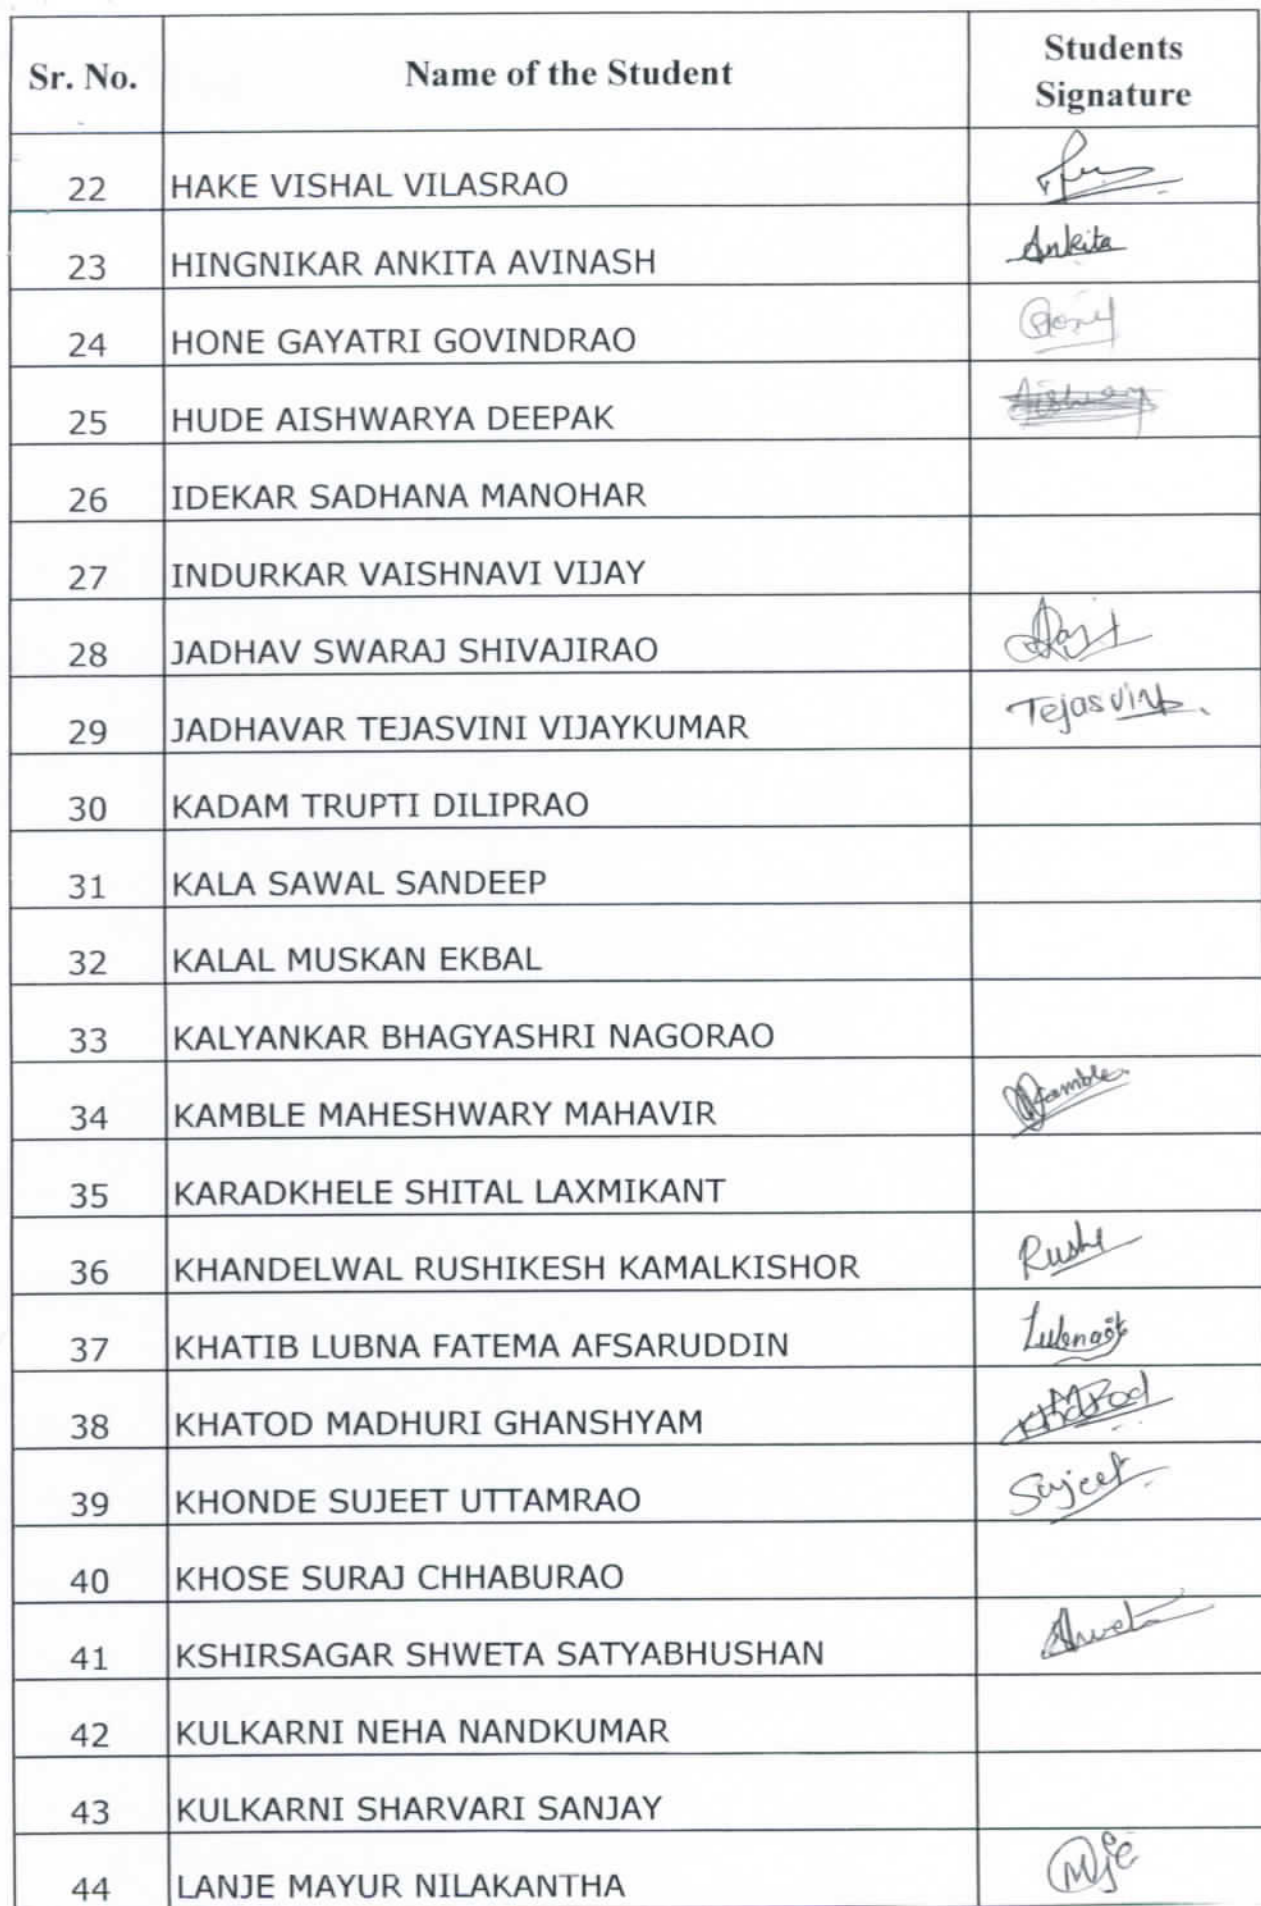 Sr. No. Name of the Student Students
Signature
22 HAKE VISHAL VILASRAO
23 HINGNIKAR ANKITA AVINASH Ankita
24 HONE GAYATRI GOVINDRAO
25 HUDE AISHWARYA DEEPAK
26 IDEKAR SADHANA MANOHAR
27 INDURKAR VAISHNAVI VIJAY
28 JADHAV SWARAJ SHIVAJIRAO
29 JADHAVAR TEJASVINI VIJAYKUMAR Tejasvini
30 KADAM TRUPTI DILIPRAO
31 KALA SAWAL SANDEEP
32 KALAL MUSKAN EKBAL
33 KALYANKAR BHAGYASHRI NAGORAO
34 KAMBLE MAHESHWARY MAHAVIR
35 KARADKHELE SHITAL LAXMIKANT
36 KHANDELWAL RUSHIKESH KAMALKISHOR Rushi
37 KHATIB LUBNA FATEMA AFSARUDDIN
38 KHATOD MADHURI GHANSHYAM
39 KHONDE SUJEET UTTAMRAO Sujeet
40 KHOSE SURAJ CHHABURAO
41 KSHIRSAGAR SHWETA SATYABHUSHAN
42 KULKARNI NEHA NANDKUMAR
43 KULKARNI SHARVARI SANJAY
44 LANJE MAYUR NILAKANTHA